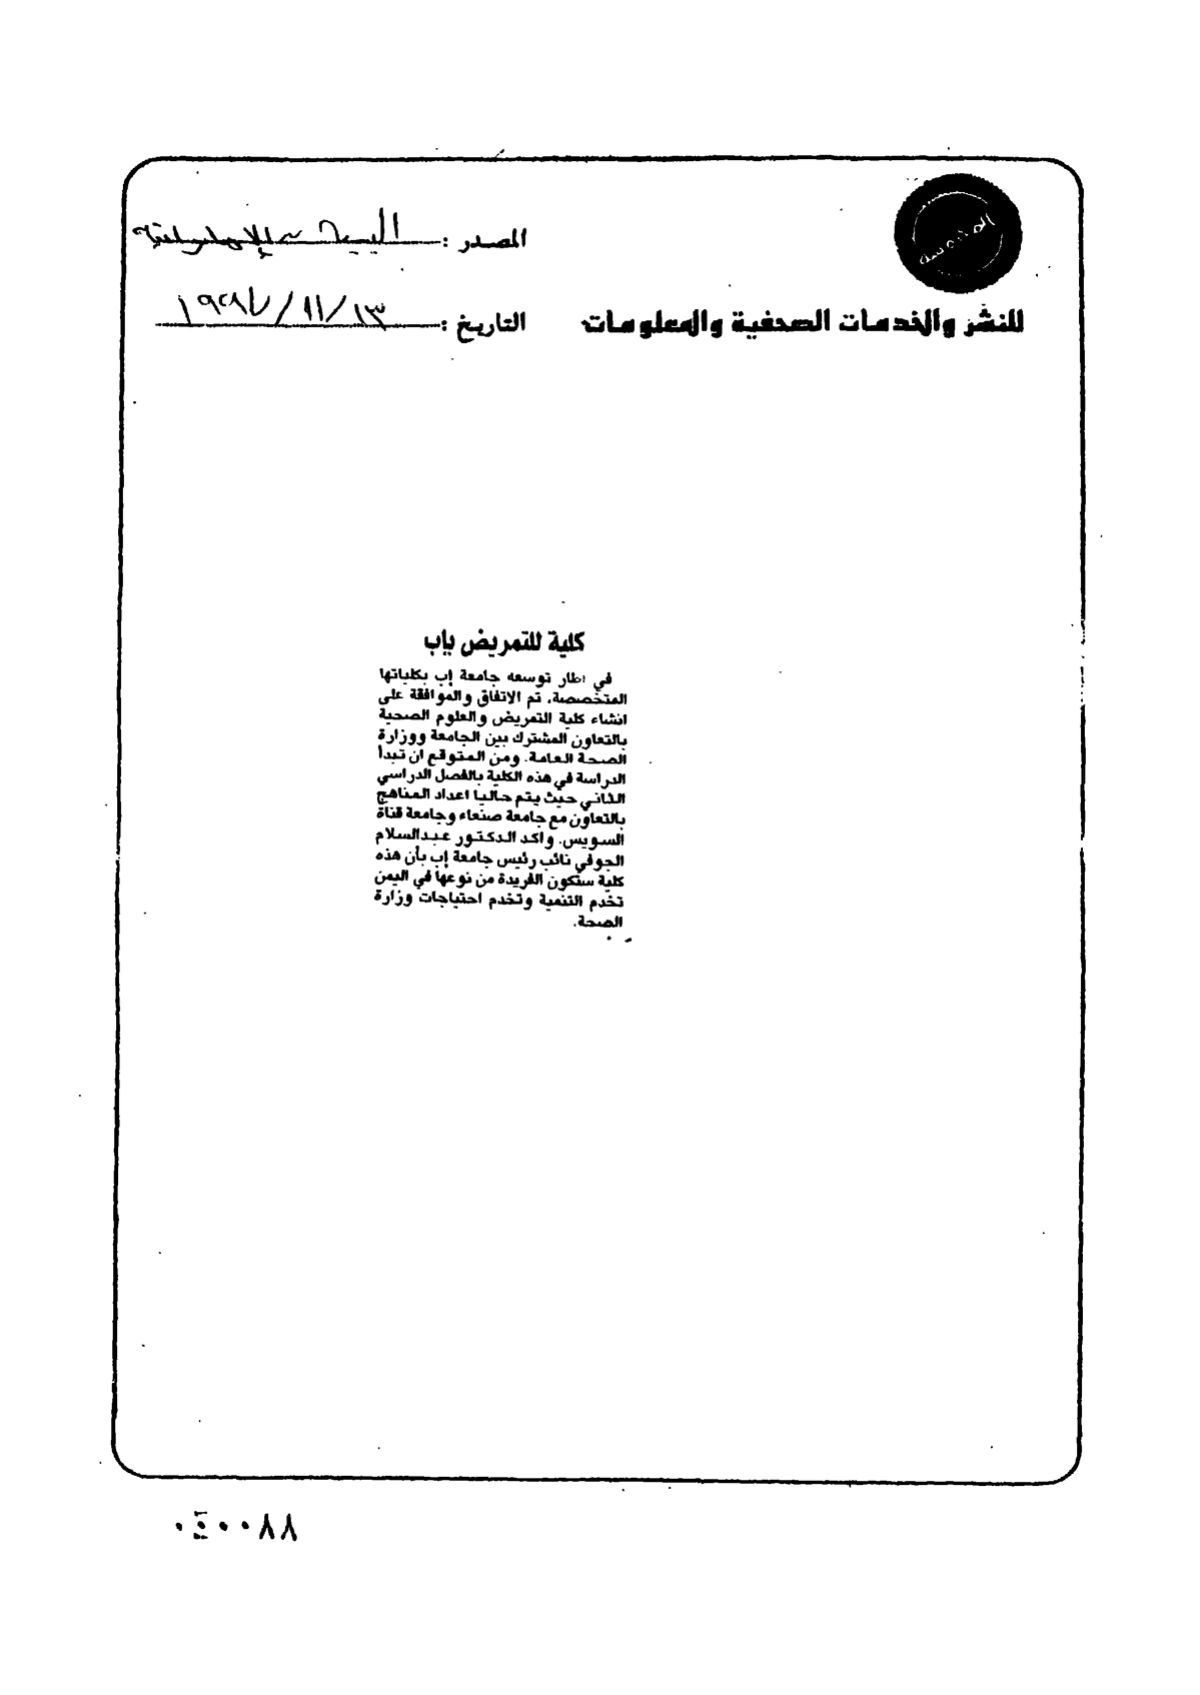 المصدر : البيان الإماراتية
للنشر والخدمات الصحفية والمعلومات
التاريخ : ١٣/١١/
كلية للتمريض بإب
في اطار توسعه جامعة إب بكلياتها
المتخصصة، تم الاتفاق والموافقة على
انشاء كلية التمريض والعلوم الصحية
بالتعاون المشترك بين الجامعة ووزارة
الصحة العامة. ومن المتوقع ان تبدأ
الدراسة في هذه الكلية بالفصل الدراسي
الثاني حيث يتم حاليا اعداد المناهج
بالتعاون مع جامعة صنعاء وجامعة قناة
السويس. واكد الدكتور عبدالسلام
الجوفي نائب رئيس جامعة إب بأن هذه
كلية ستكون الفريدة من نوعها في اليمن
تخدم التنمية وتخدم احتياجات وزارة
الصحة.